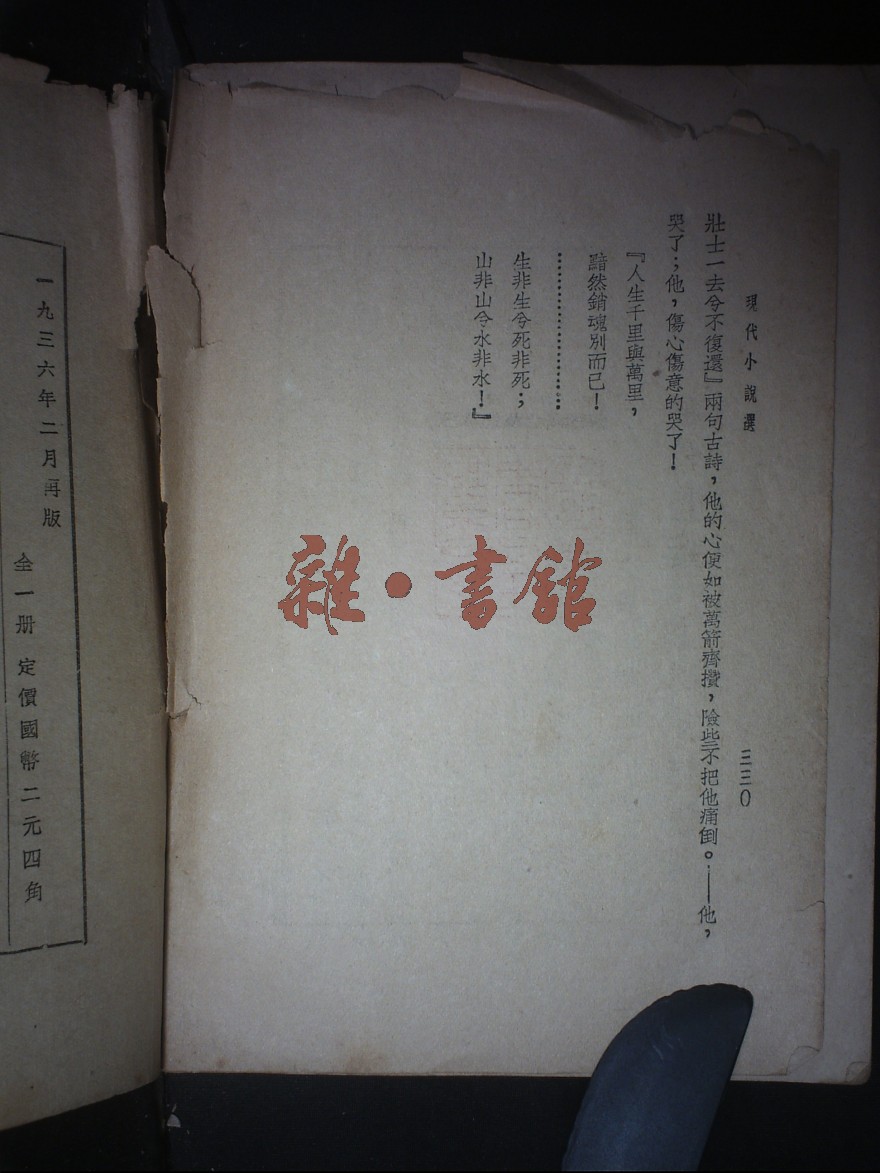 現代小說選
三三〇
壯士一去兮不復還』兩句古詩，他的心便如被萬箭齊攢，險些不把他痛倒。——他，
哭了；他，傷心傷意的哭了！
『人生千里與萬里，
黯然銷魂別而已！
…………………
生非生兮死非死；
山非山兮水非水！』
一九三六年二月再版
全一册 定價國幣二元四角
雜·書館